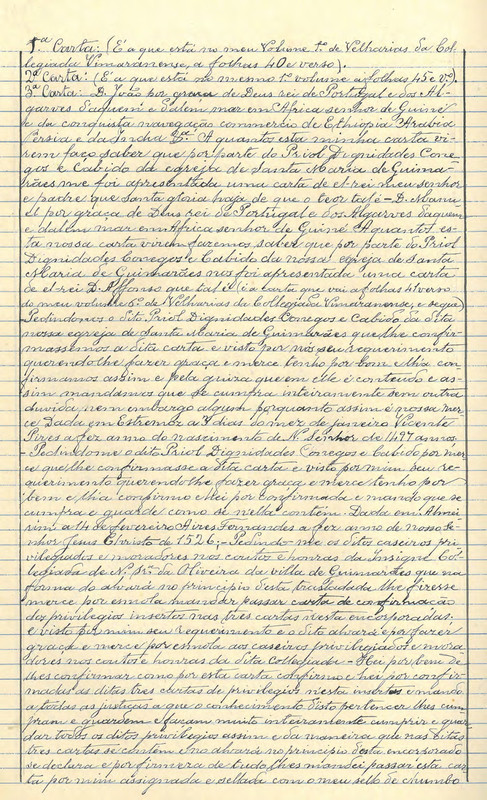 1.ª Carta: (É a que está no meu Volume 1.º de Velharias da Col-
legiada Vimaranense, a folhas 40 e verso).
2.ª Carta: (É a que está no mesmo 1.º volume a folhas 45 e v.º)
3.ª Carta: D. João por graça de Deus rei de Portugal e dos Al-
garves d'aquem e d'alem mar em Africa senhor de Guiné
e da conquista navegação commercio de Ethiopia Arabia
Persia e da India &.ª A quantos esta minha carta vi-
rem faço saber que por parte do Priol Dignidades Cone-
gos e Cabido da egreja de Santa Maria de Guima-
rães me foi apresentada uma carta de el-rei meu senhor
e padre que santa gloria haja de que o teor tal é - D. Manu-
el por graça de Deus rei de Portugal e dos Algarves d'aquem
e d'alem mar em Africa senhor de Guiné A quantos es-
ta nossa carta virem fazemos saber que por parte do Priol
Dignidades Conegos e Cabido da nossa egreja de Santa
Maria de Guimarães nos foi apresentada uma carta
de el-rei D. Affonso que tal é (é a carta que vai a folhas 41 verso
do meu volume 6.º de Velharias da Collegiada Vimaranense, e segue)
- Pedindo-nos o dito Priol Dignidades Conegos e Cabido da dita
nossa egreja de Santa Maria de Guimarães que lhe confir-
massemos a dita carta e visto por nós seu requerimento
querendo-lhe fazer graça e merce tenho por bem e lh'a con-
firmamos assim e pela guiza que em elle é conteudo e as-
sim mandamos que se cumpra inteiramente sem outra
duvida nem embargo algum porquanto assim é nossa mer-
ce Dada em Estremoz a 4 dias do mez de janeiro Vicente
Pires a fez anno do nascimento de N. Senhor de 1497 annos.
- Pedindo-me o dito Priol Dignidades Conegos e Cabido por mer-
ce que lhe confirmasse a dita carta e visto por mim seu re-
querimento querendo-lhe fazer graça e merce tenho por
bem e lh'a confirmo e hei por confirmada e mando que se
cumpra e guarde como se nella contém. Dada em Almei-
rim a 14 de fevereiro Aires Fernandes a fez anno de nosso Se-
nhor Jesus Christo de 1526; - Pedindo-me os ditos caseiros pri-
vilegiados e moradores nos coutos e honras da Insigne Col-
legiada de N.ª Sr.ª da Oliveira da villa de Guimarães que na
forma do alvará no principio d'esta trasladada lhe fizesse
merce por esmola mandar passar carta de confirmação
dos privilegios insertos nas tres cartas nesta encorporadas;
e visto por mim seu requerimento e o dito alvará e por fazer
graça e merce por esmola aos caseiros privilegiados e mora-
dores nos coutos e honras da dita Collegiada - Hei por bem de
lhes confirmar como por esta carta confirmo e hei por confir-
madas as ditas tres cartas de privilegios n'esta insertas e mando
a todas as justiças a que o conhecimento disto pertencer lhes cum-
pram e guardem e façam muito inteiramente cumprir e guar-
dar todos os ditos privilegios assim e da maneira que nas ditas
tres cartas se contém e no alvará no principio desta encorporado
se declara e por firmeza de tudo lhes mandei passar esta car-
ta por mim assignada e sellada com o meu sello de chumbo